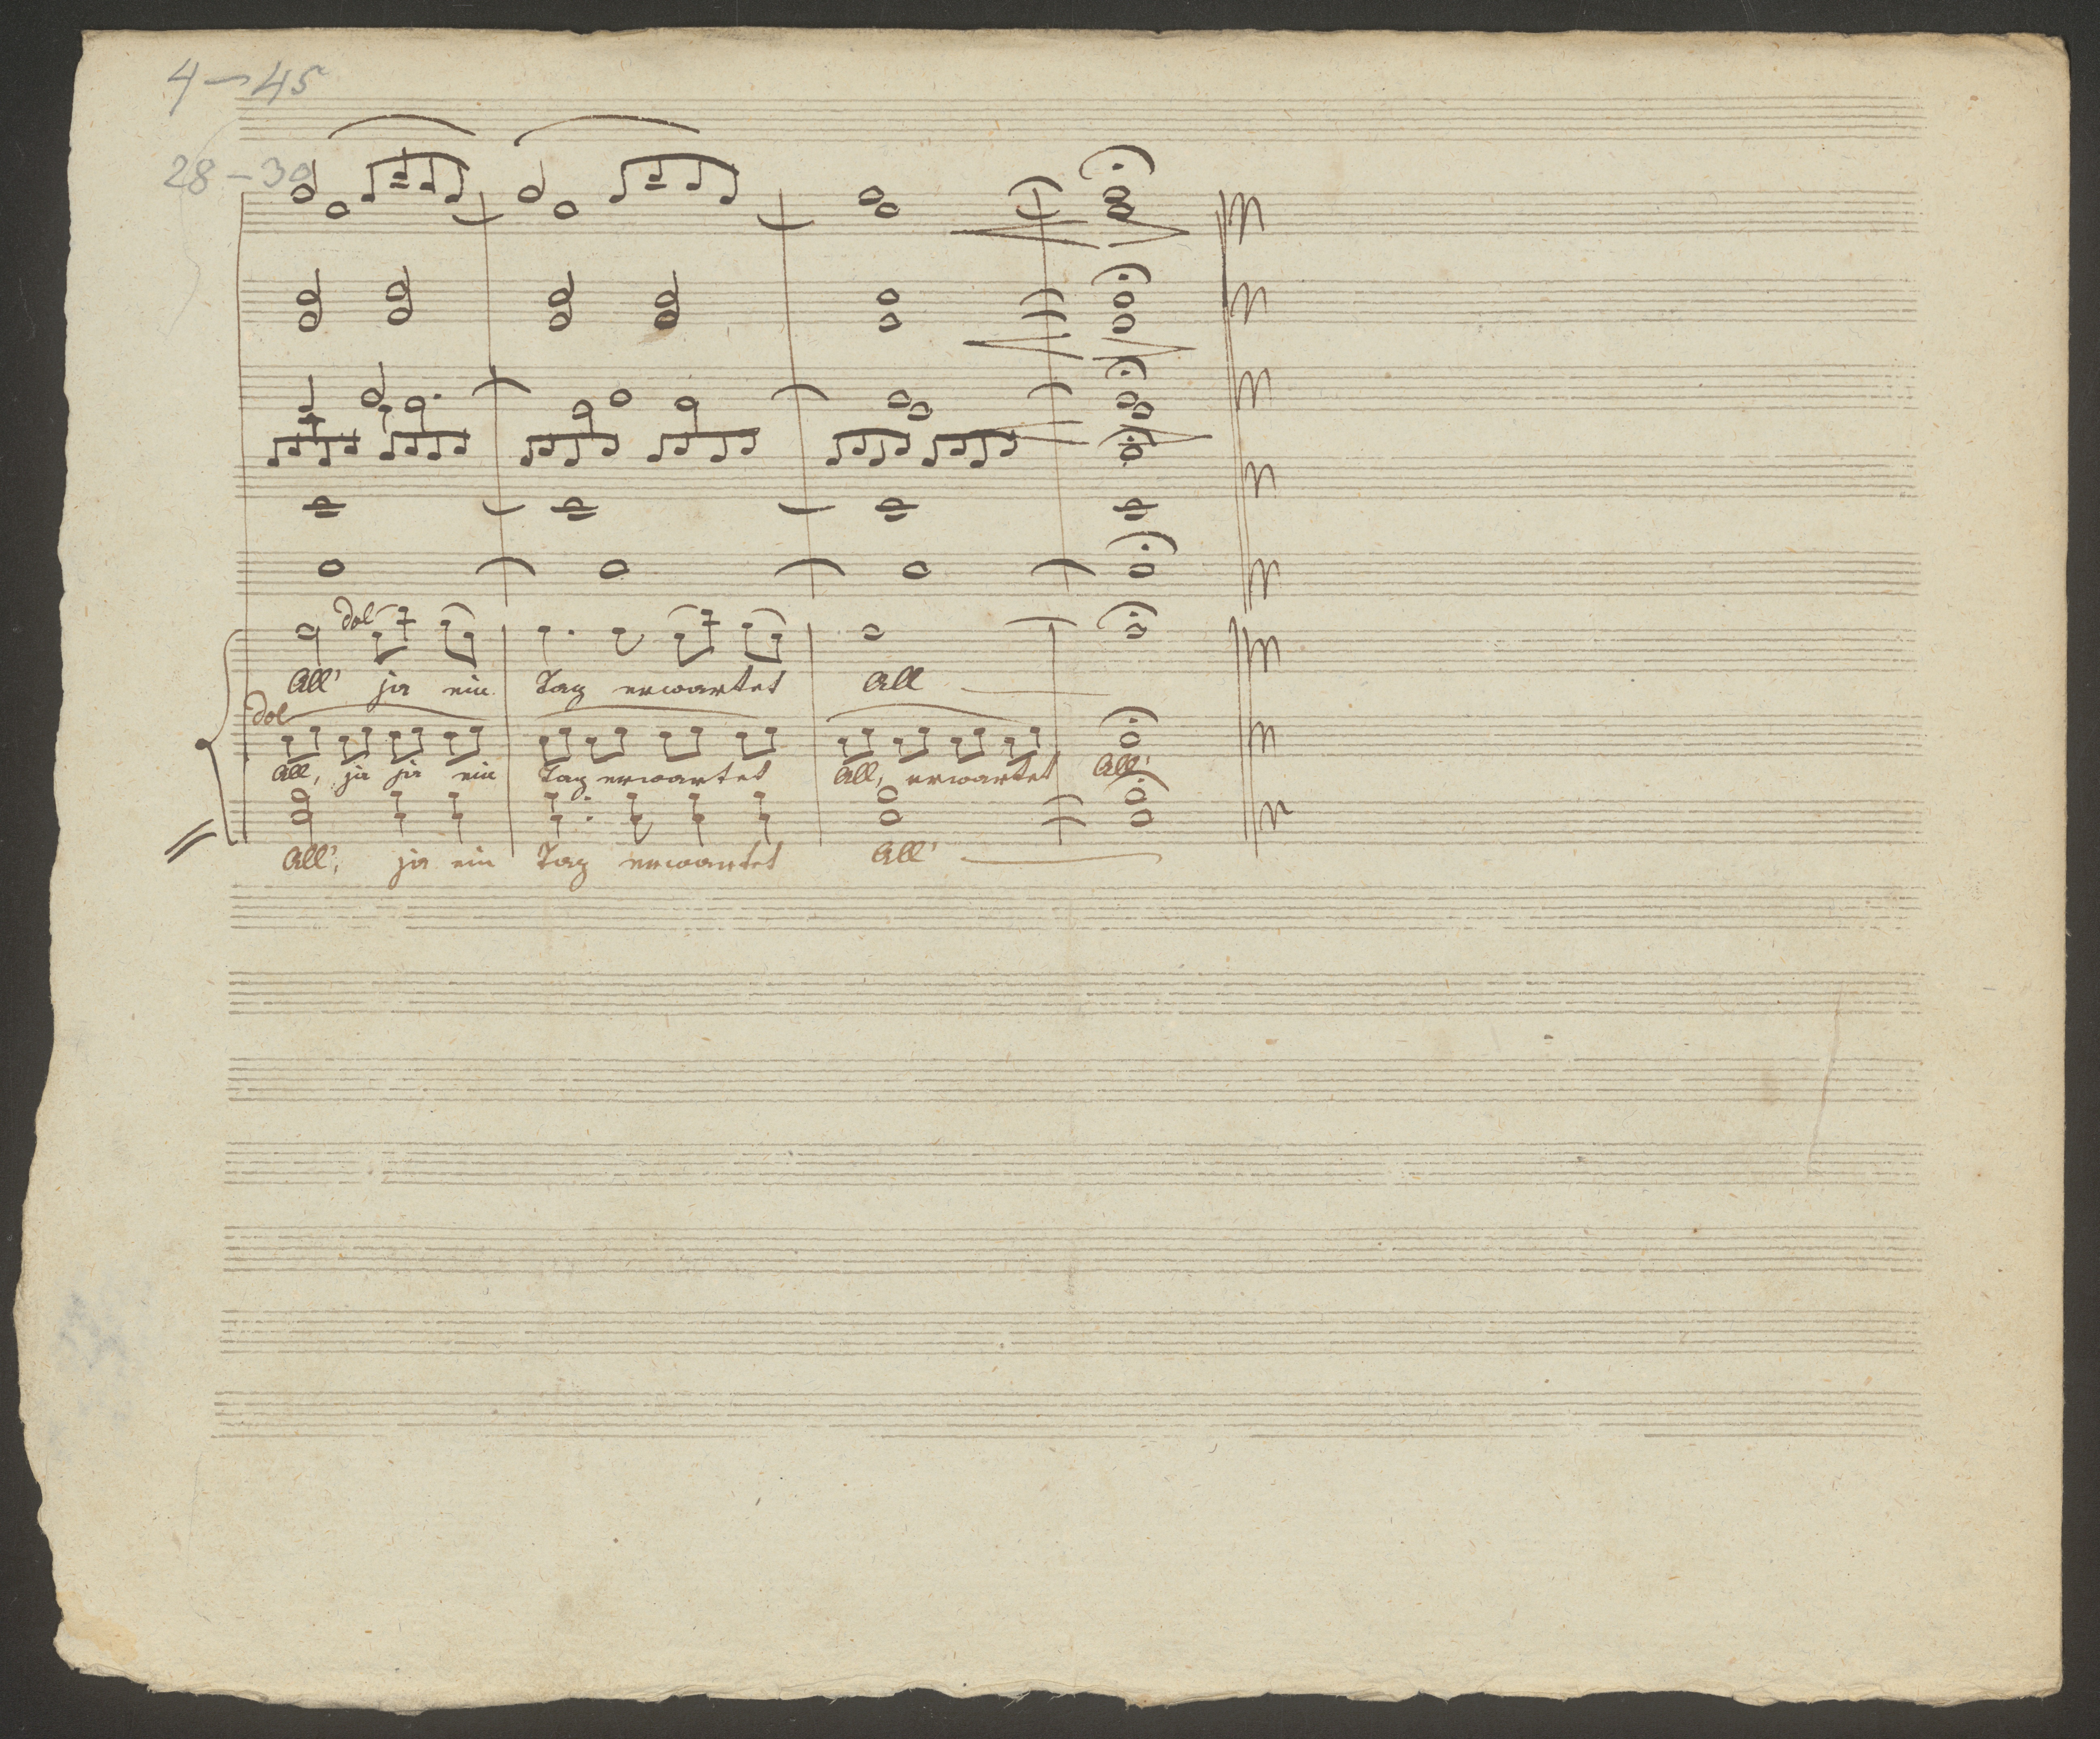 4 – 45
28 – 30
dol
All' ja ein Tag erwartet All
dol
All, ja ja ein Tag erwartet All, erwartet All'
All', ja ein Tag erwartet All'